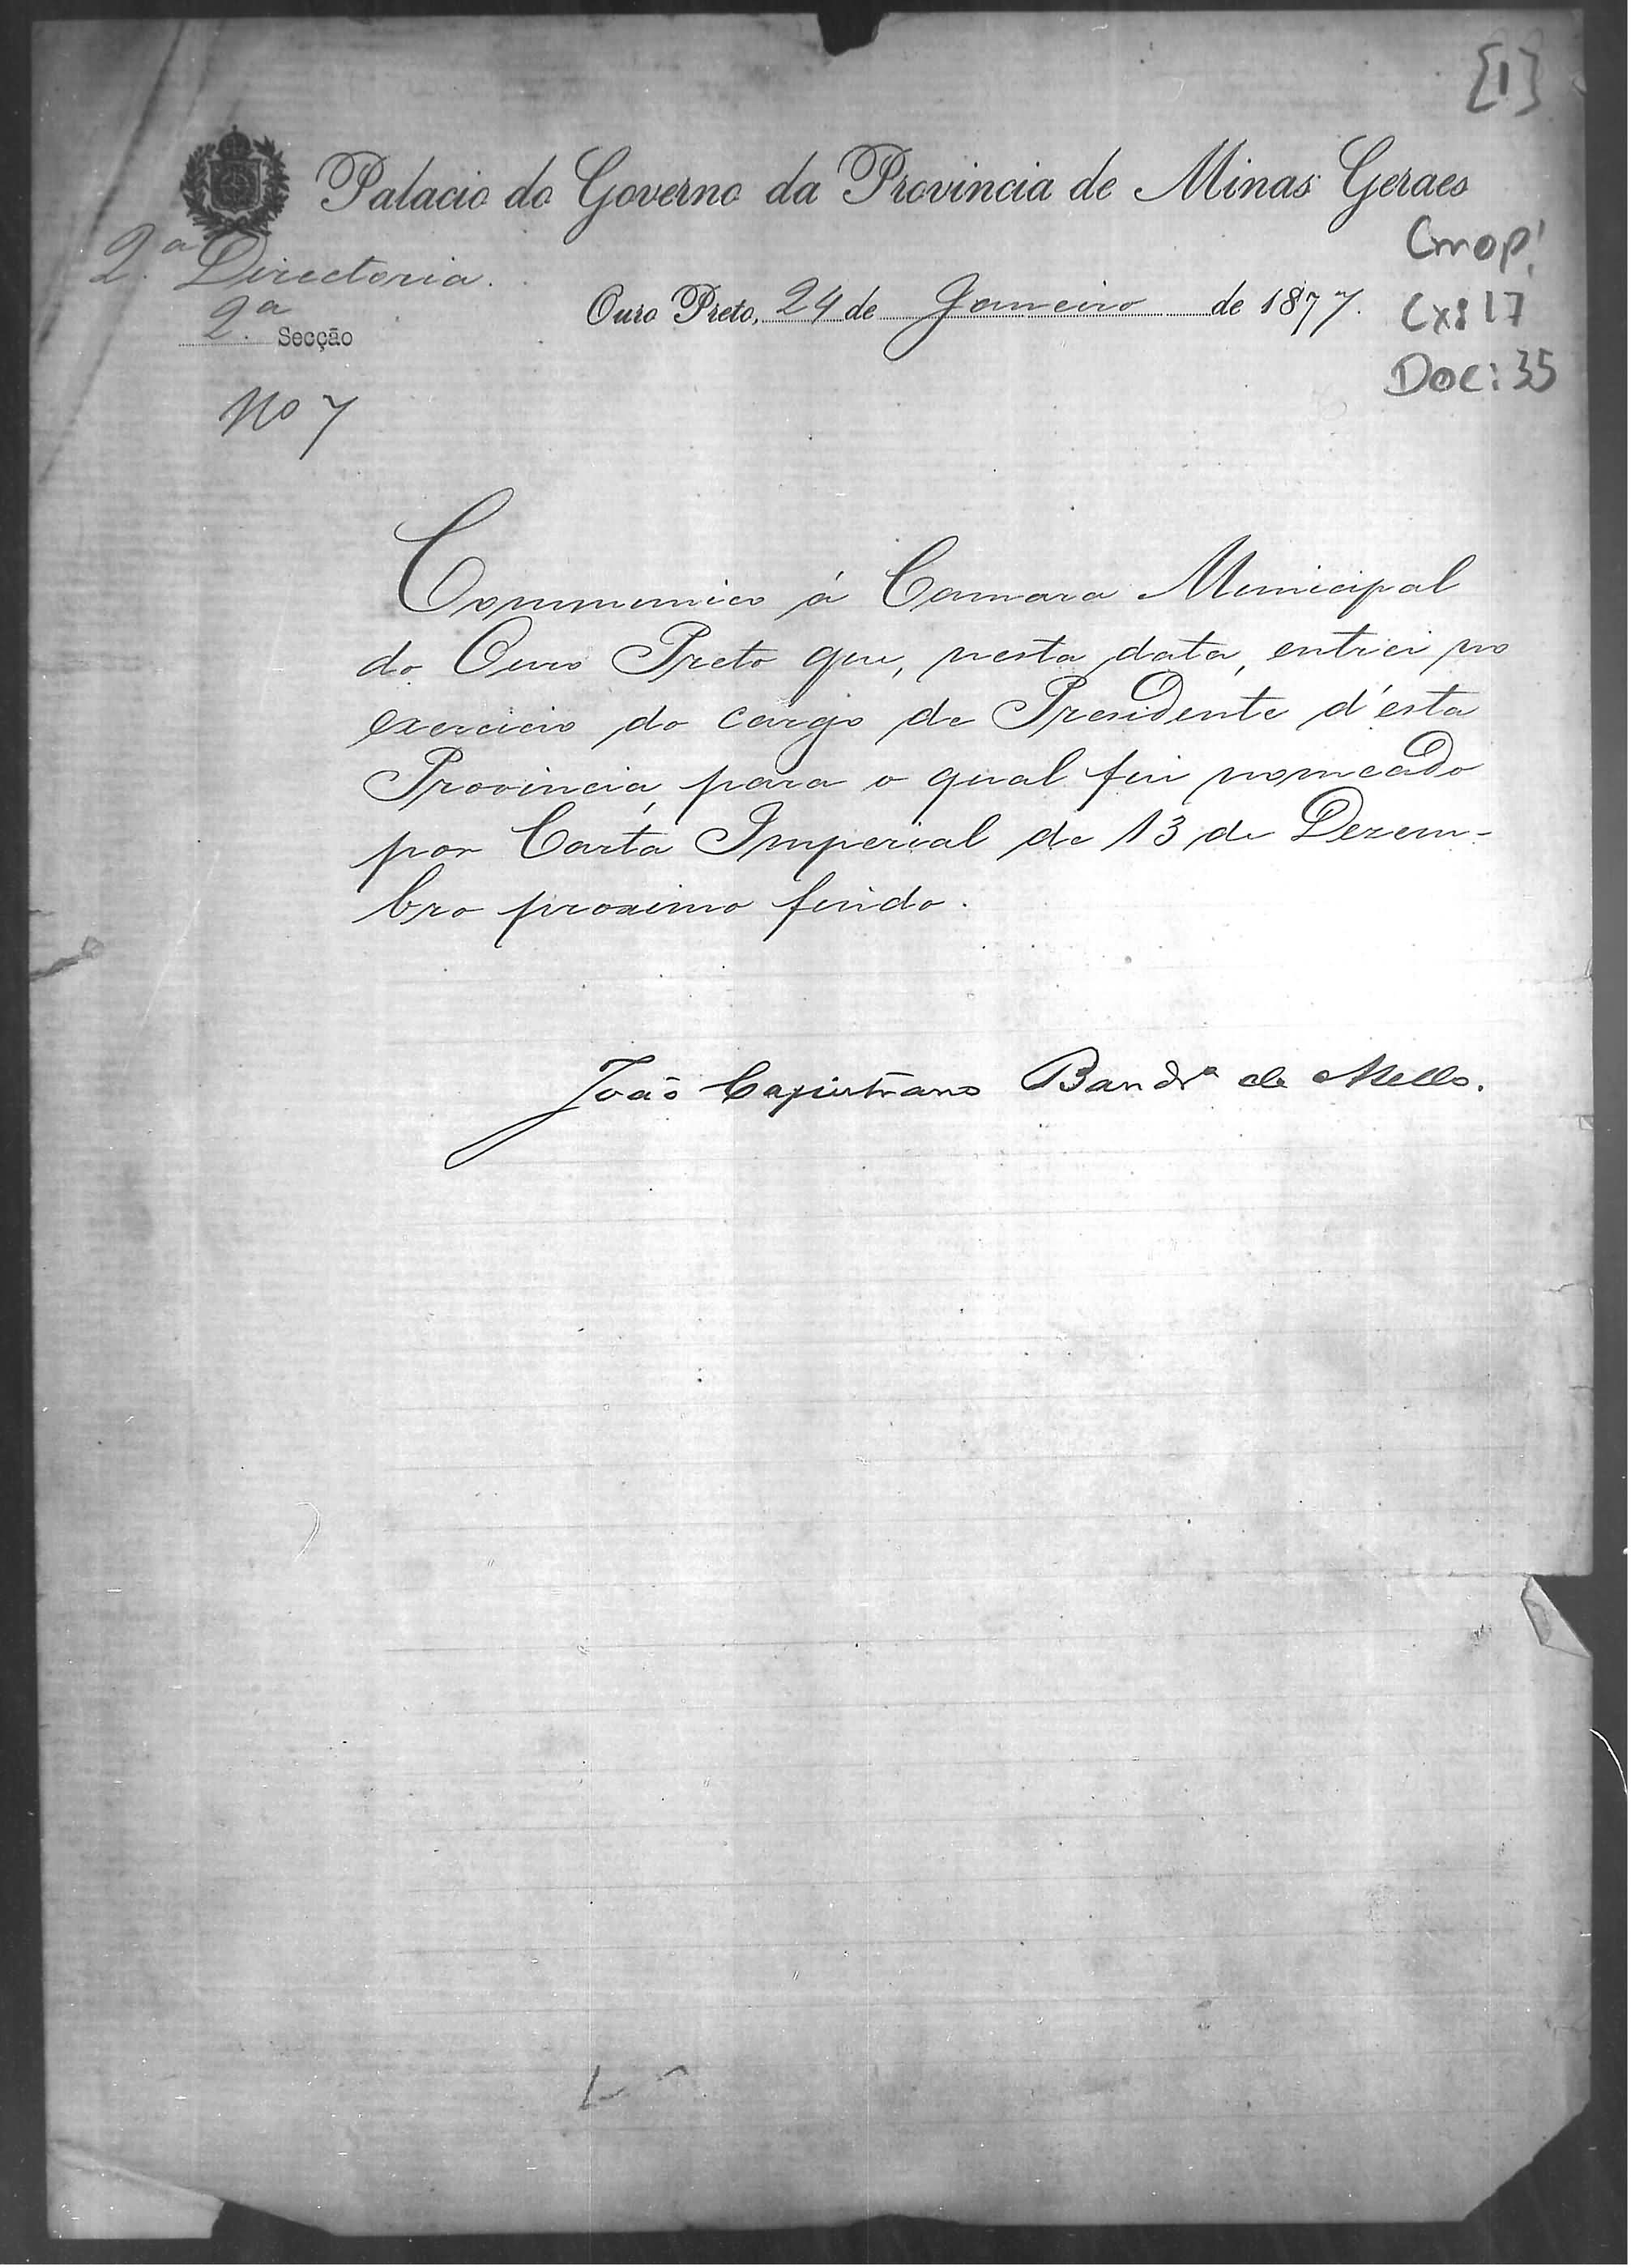 [1]
Palacio do Governo da Provincia de Minas Geraes
2.ª Directoria.
2.ª Secção
Ouro Preto, 24 de Janeiro de 1877.
Cmop:
Cx: 17
Doc: 35
Nº 7
Communico á Camara Municipal
do Ouro Preto que, nesta data, entrei no
exercicio do cargo de Presidente d'esta
Provincia, para o qual fui nomeado
por Carta Imperial de 13 de Dezem-
bro proximo findo.
João Capistrano Bandrª de Mello.